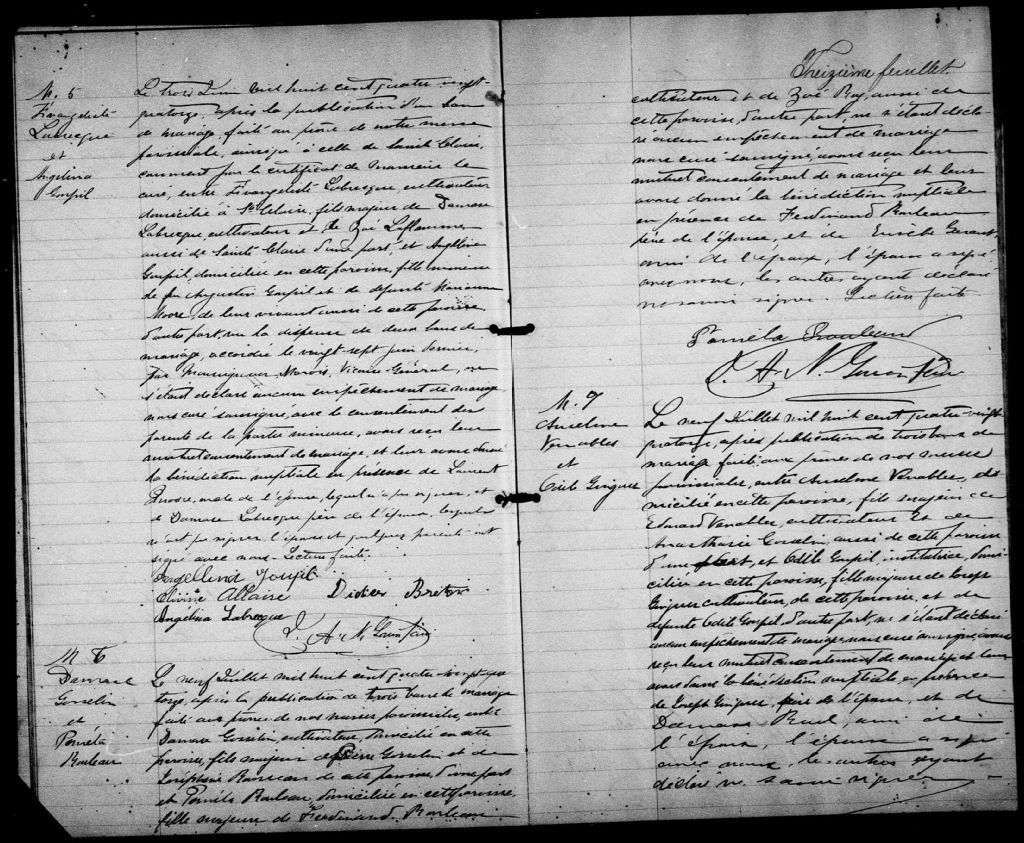 M. 5
Evangéliste
Labrecque
et
Angelina
Goupil
Le trois Juin mil huit cent quatre vingt
quatorze, après la publication d'un ban
de mariage, fait au prône de notre messe
paroissiale, ainsi qu'à celle de Sainte Claire,
comme par le certificat de Monsieur le
curé, entre Evangéliste Labrecque cultivateur
domicilié à Ste Claire, fils majeur de Damase
Labrecque, cultivateur et de Zoé Laflamme
aussi de Sainte Claire d'une part, et Angélina
Goupil, domiciliée en cette paroisse, fille mineure
de feu Augustin Goupil et de défunte Marianne
Moore, de leur vivant aussi de cette paroisse
d'autre part, vu la dispense de deux bans de
mariage, accordée le vingt-sept juin dernier,
par Monseigneur Marois, Vicaire-Général, ne
s'étant déclaré aucun empêchement de mariage
nous curé soussigné, avec le consentement des
parents de la partie mineure, avons reçu leur
mutuel consentement de mariage, et leur avons donné
la bénédiction nuptiale en présence de Laurent
de l'épouse, lequel n'a pu signer, et
de Damase Labrecque père de l'époux, lequel
n'a pu signer, l'épouse et quelques parents ont
signé avec nous. Lecture faite.
Angellina Goupil
Allaire Didier Breton
Angélina Labrecque
M 6
Damase
Gosselin
et
Paméla
Rouleau
Le neuf Juillet mil huit cent quatre vingt qua-
torze, après la publication de trois bans de mariage
faite aux prônes de nos messes paroissiales, entre
Damase Gosselin, cultivateur, domicilié en cette
paroisse, fils majeur de Pierre Gosselin et de
de cette paroisse, d'une part
et Paméla Rouleau, domiciliée en cette paroisse,
fille majeure de Ferdinand Rouleau
Treizième feuillet
cultivateur et de Zoé Roy, aussi de
cette paroisse, d'autre part, ne s'étant décla-
ré aucun empêchement de mariage
nous curé soussigné, avons reçu leur
mutuel consentement de mariage et leur
avons donné la bénédiction nuptiale
en présence de Ferdinand Rouleau
père de l'épouse, et de Garant
ami de l'époux, l'épouse a signé
avec nous, les autres ayant déclaré
ne savoir signer. Lecture faite
Paméla Rouleau
M. 7
Anselme
Venables
et
Odile
Le neuf Juillet mil huit cent quatre-vingt
quatorze, après publication de trois bans de
mariage faite aux prônes de nos messes
paroissiales, entre Anselme Venables, do-
micilié en cette paroisse, fils majeur de
Edouard Venables, cultivateur et de
Gosselin, aussi de cette paroisse
d'une part, et Odile institutrice, domi-
ciliée en cette paroisse, fille majeure de Joseph
cultivateur, de cette paroisse, et de
défunte Odile Goupil, d'autre part, ne s'étant déclaré
aucun empêchement de mariage, nous curé soussigné, avons
reçu leur mutuel consentement de mariage et leur
avons donné la bénédiction nuptiale en présence
de Joseph père de l'épouse, et de
Damase ami de
l'époux, l'épouse a signé
avec nous, les autres ayant
déclaré ne savoir signer